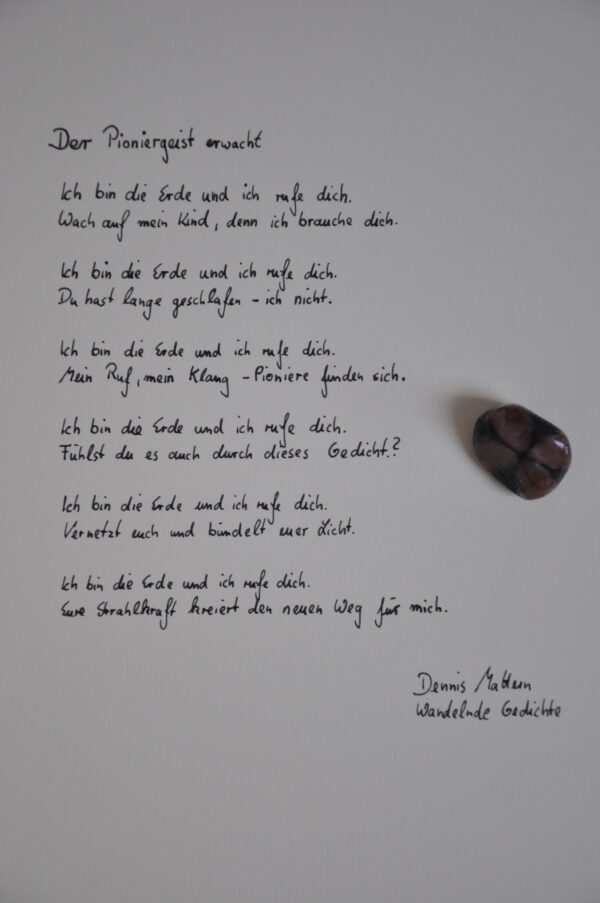 Der Pioniergeist erwacht
Ich bin die Erde und ich rufe dich.
Wach auf mein Kind, denn ich brauche dich.
Ich bin die Erde und ich rufe dich.
Du hast lange geschlafen - ich nicht.
Ich bin die Erde und ich rufe dich.
Mein Ruf, mein Klang - Pioniere finden sich.
Ich bin die Erde und ich rufe dich.
Fühlst du es auch durch dieses Gedicht?
Ich bin die Erde und ich rufe dich.
Vernetzt euch und bündelt euer Licht.
Ich bin die Erde und ich rufe dich.
Eure Strahlkraft kreiert den neuen Weg für mich.
Dennis Mattern
Wandelnde Gedichte